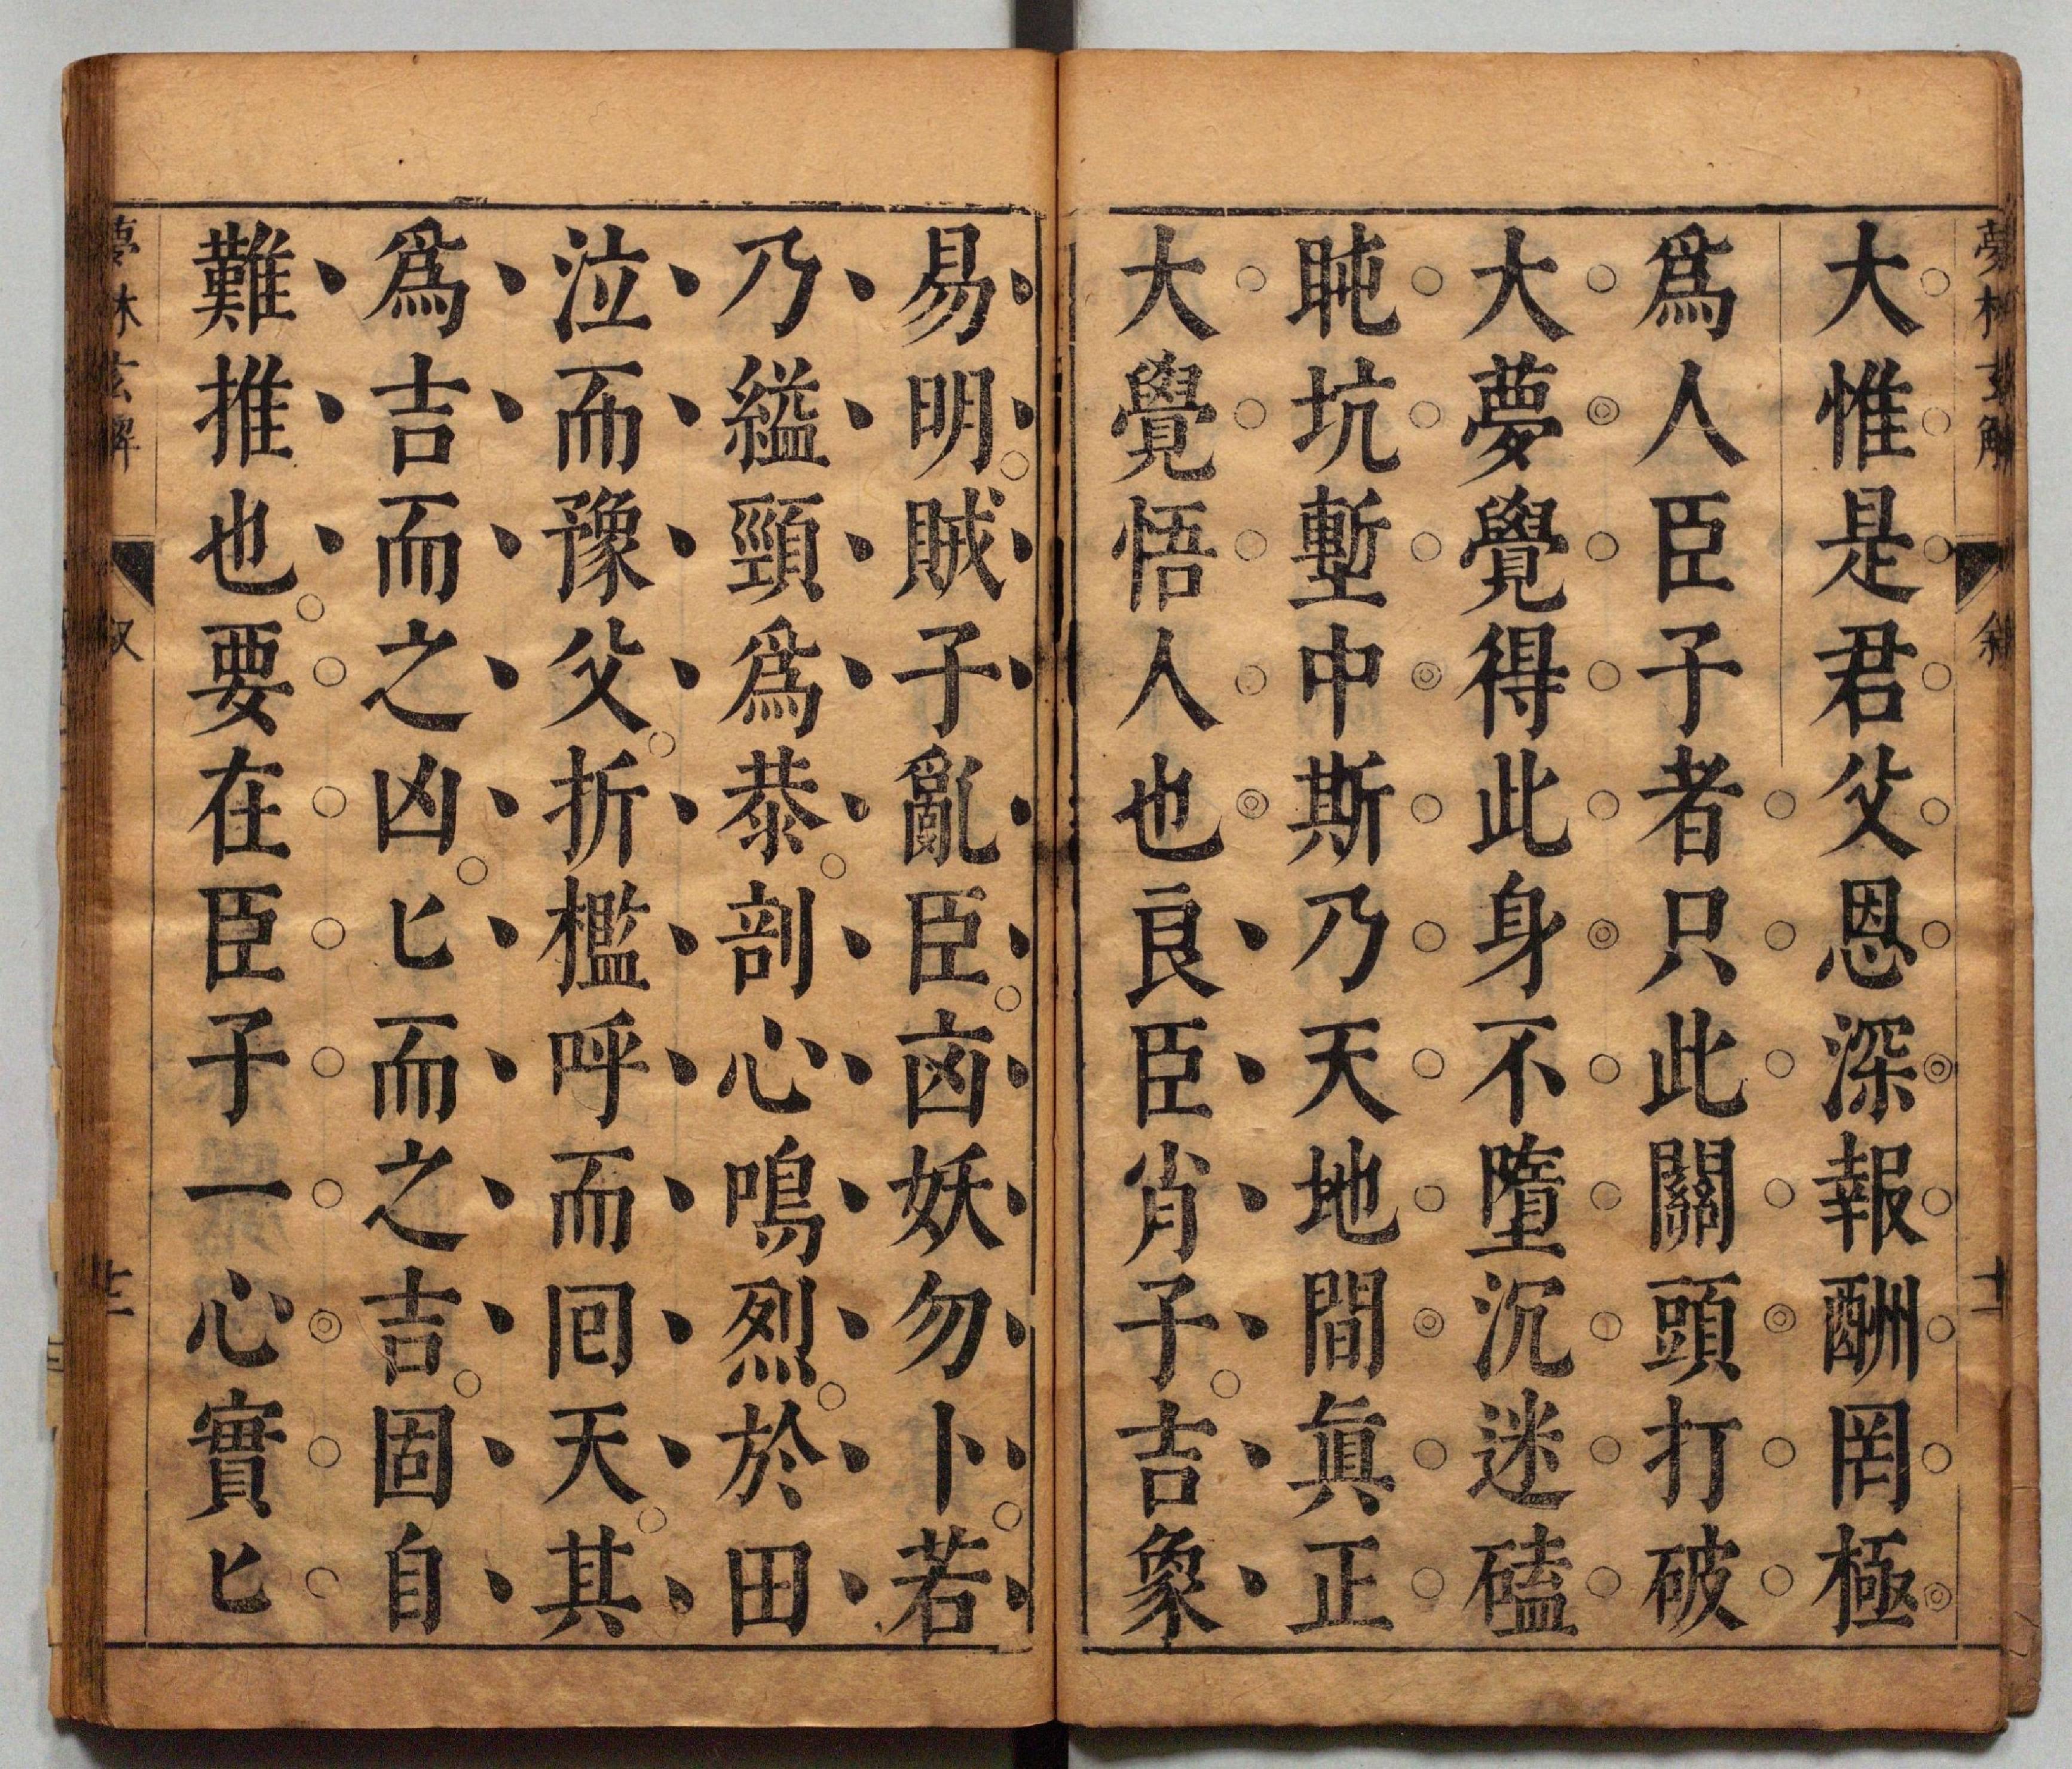 夢林玄解 敘 十二
大惟是君父恩深報酬罔極
爲人臣子者只此關頭打破
大夢覺得此身不墮沉迷磕
盹坑塹中斯乃天地間眞正
大覺悟人也良臣肖子吉象
易明賊子亂臣凶妖勿卜若
乃縊頸爲恭剖心鳴烈於田
泣而豫父折檻呼而囘天其
爲吉而之凶匕而之吉固自
難推也要在臣子一心實匕
夢林玄解 叙 十三